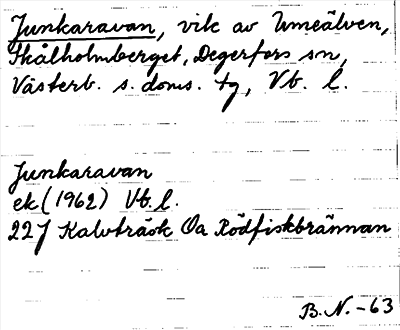 Junkaravan, vik av Umeälven,
Skålholmberget, Degerfors sn,
Västerb. s. doms. tg, Vb. l.
Junkaravan
ek (1962) Vb. l.
22J Kalvträsk Oa Rödfiskbrännan
B. N. -63